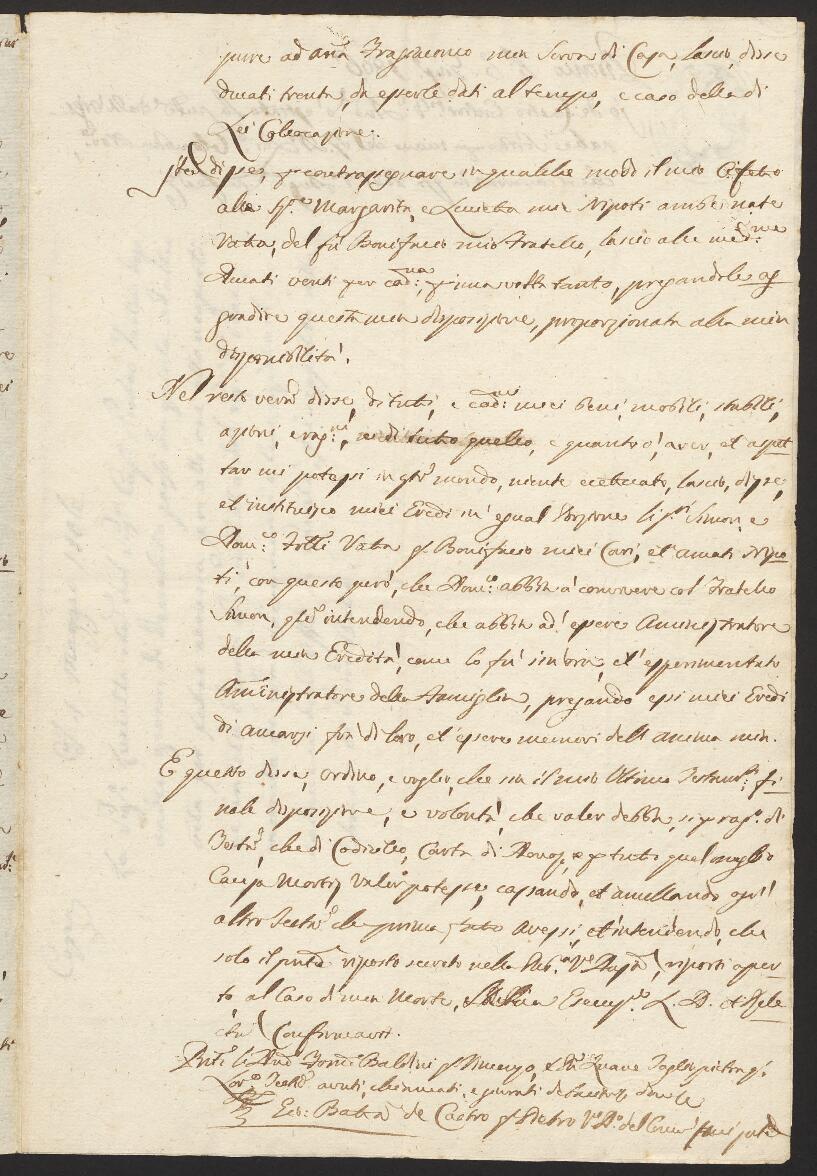 pure ad Anã Fragiacomo mia Serva di Casa, lascio, disse
ducati trenta, da esserle dati al tempo, e caso della di
Lei Collocazione.
Item disse, per contrasegnare in qualche modo il mio affetto
alle Sig.re Margarita, e Lucietta mie Nipoti ambe nate
Vatta, del fù Bonifacio mio Fratello, lascio alle med.me
ducati venti per cad.na, p una volta tanto, pregandole ag
gradire questa mia disposizione, proporzionata alla mia
disponibilità.
Nel resto verò disse, di tutti, e cad.ni miei beni, mobili, stabili,
azioni, e rag.ni, e di tutto quello, e quanto ò, aver, et aspet
tar mi potessi in q.to mondo, niente eccettuato, lascio, disse,
et instituisco miei Eredi in egual porzione li Sig.ri Simon, e
Dom.co Fratelli Vatta q. Bonifacio miei Cari, et amati Nipo
ti, con questo però, che Dom.co abbia à convivere col Fratello
Simon, q.le intendendo, che abbia ad essere Aministratore
della mia Eredità, come lo fù sin'ora, et esperimentato
Aministratore della Famiglia, pregando essi miei Eredi
di amarsi frà di loro, et essere memori dell anima mia.
E questo disse, ordino, e voglio, che sia il mio Ultimo Testam.to, fi
nale disposizione, e volontà, che valer debba, si p rag.n di
Test.o, che di Codicillo, Carta di Donaz.e, e p tutto quel meglio
Causa Mortis valer potesse, cassando, et anullando ogn'
altro Test.o che prima fatto avessi, et intendendo, che
solo il pnte riposto secreto nella Pub.a V.e Dnia, riporti aper
to al Caso di mia Morte, la sua Esecuz.e L. D. et Rele
ctu Confirmavit.
Pnti li Dno Fran.co Baldini q. Vicenzo, e D.no Zuane
Test. avuti, chiamati, e giurati
Gio: Batta de Castro q. Pietro V.o D.o del Comun